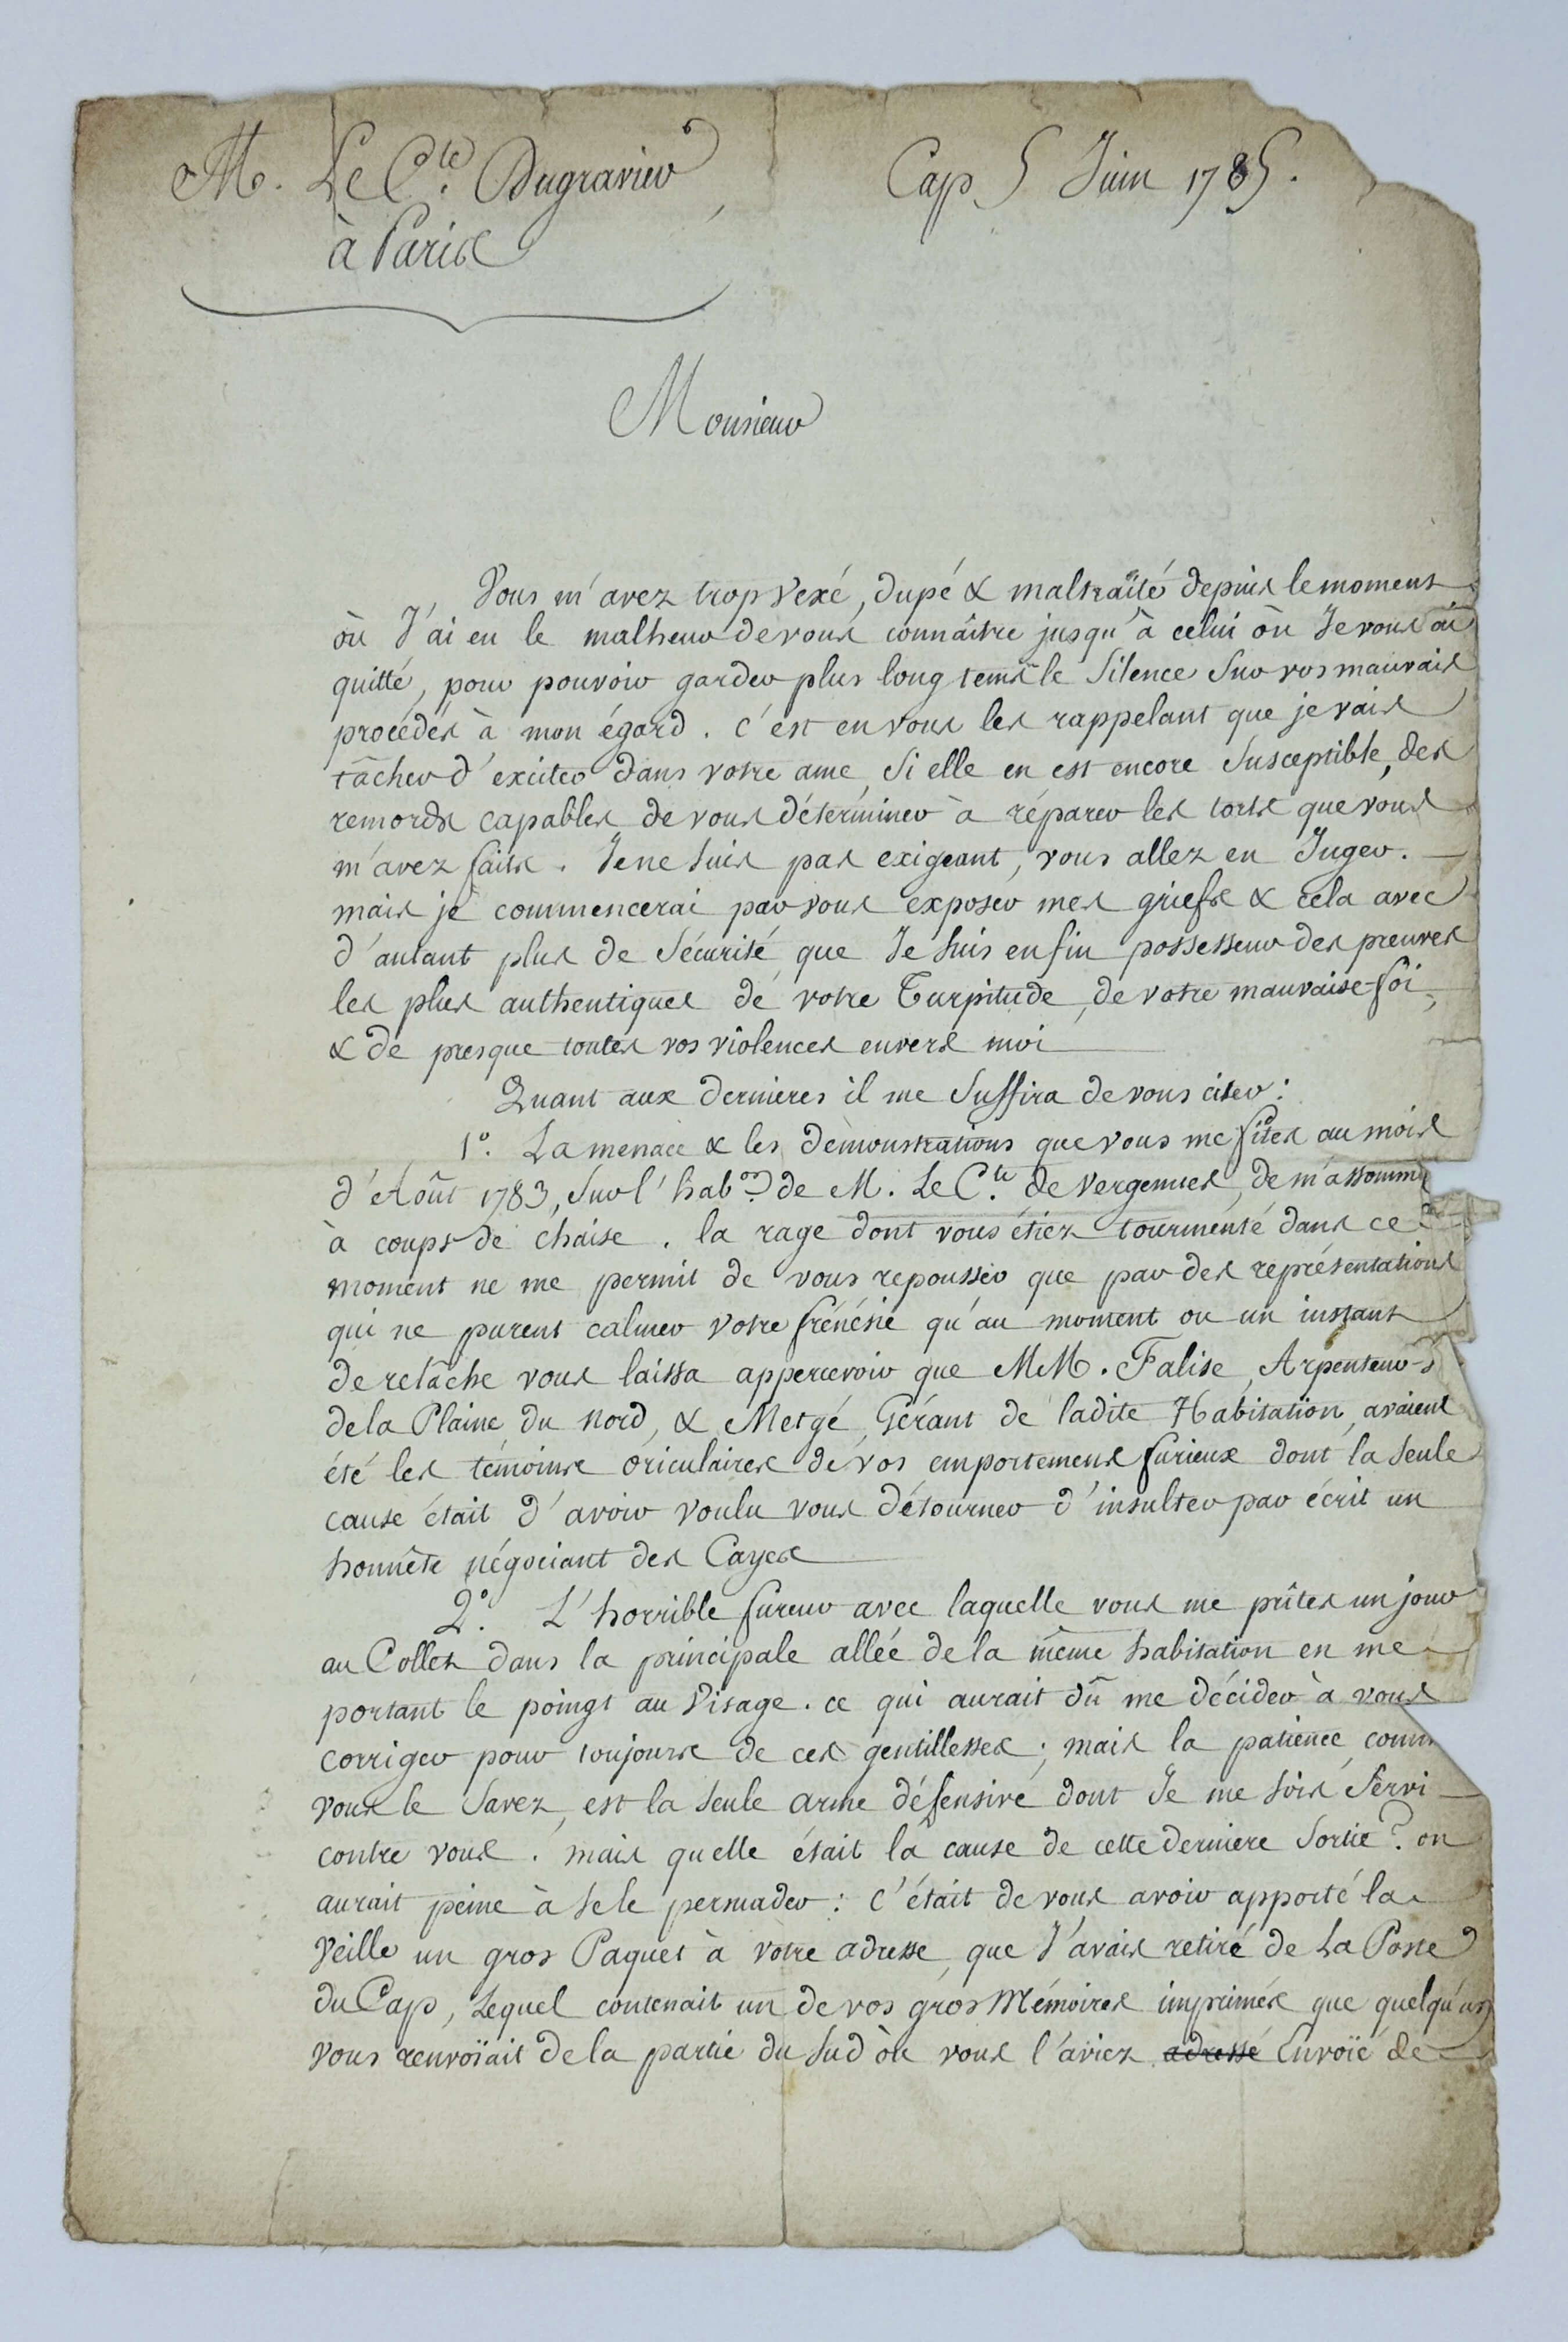 M. Le C.te Dugravier,
à Paris
Cap 5 Juin 1785.
Monsieur
Vous m'avez trop vexé, dupé & maltraité depuis le moment
où J'ai eu le malheur de vous connaître jusqu'à celui où Je vous ai
quitté, pour pouvoir garder plus long tems le Silence Sur vos mauvais
procédés à mon égard. c'est en vous les rappelant que je vais
tâcher d'exciter dans votre ame, Si elle en est encore Susceptible, des
remords capables de vous déterminer à réparer les torts que vous
m'avez faits. Je ne Suis pas exigeant, vous allez en Juger.
mais je commencerai par vous exposer mes griefs & cela avec
d'autant plus de Sécurité que Je Suis enfin possesseur des preuves
les plus authentiques de votre Turpitude, de votre mauvaise-foi,
& de presque toutes vos violences envers moi
Quant aux dernieres il me Suffira de vous citer:
1.º La menace & les démonstrations que vous me fites au mois
d'Août 1783, Sur l'hab.on de M. Le C.te de Vergennes, de m'assomme
à coups de chaise. la rage dont vous étiez tourmenté dans ce
moment ne me permit de vous repousser que par des représentations
qui ne purent calmer votre frénésie qu'au moment ou un instant
de relâche vous laissa appercevoir que MM. Falise, Arpenteur
de la Plaine du Nord, & Metgé, Gérant de ladite Habitation, avaient
été les témoins oriculaires de vos emportemens furieux dont la Seule
cause était d'avoir voulu vous détourner d'insulter par écrit un
honnête négociant des Cayes
2.º L'horrible fureur avec laquelle vous me prîtes un jour
au Collet dans la principale allée de la même habitation en me
portant le poingt au Visage. ce qui aurait dû me décider à vous
corriger pour toujours de ces gentillesses; mais la patience, comm
vous le Savez, est la Seule arme défensive dont Je me Sois Servi
contre vous. mais quelle était la cause de cette derniere Sortie? on
aurait peine à Se le persuader: c'était de vous avoir apporté la
Veille un gros Paquet à votre adresse, que J'avais retiré de La Poste
du Cap, Lequel contenait un de vos gros Mémoires imprimés que quelqu'un
vous renvoïait de la partie du Sud où vous l'aviez adressé Envoïé de